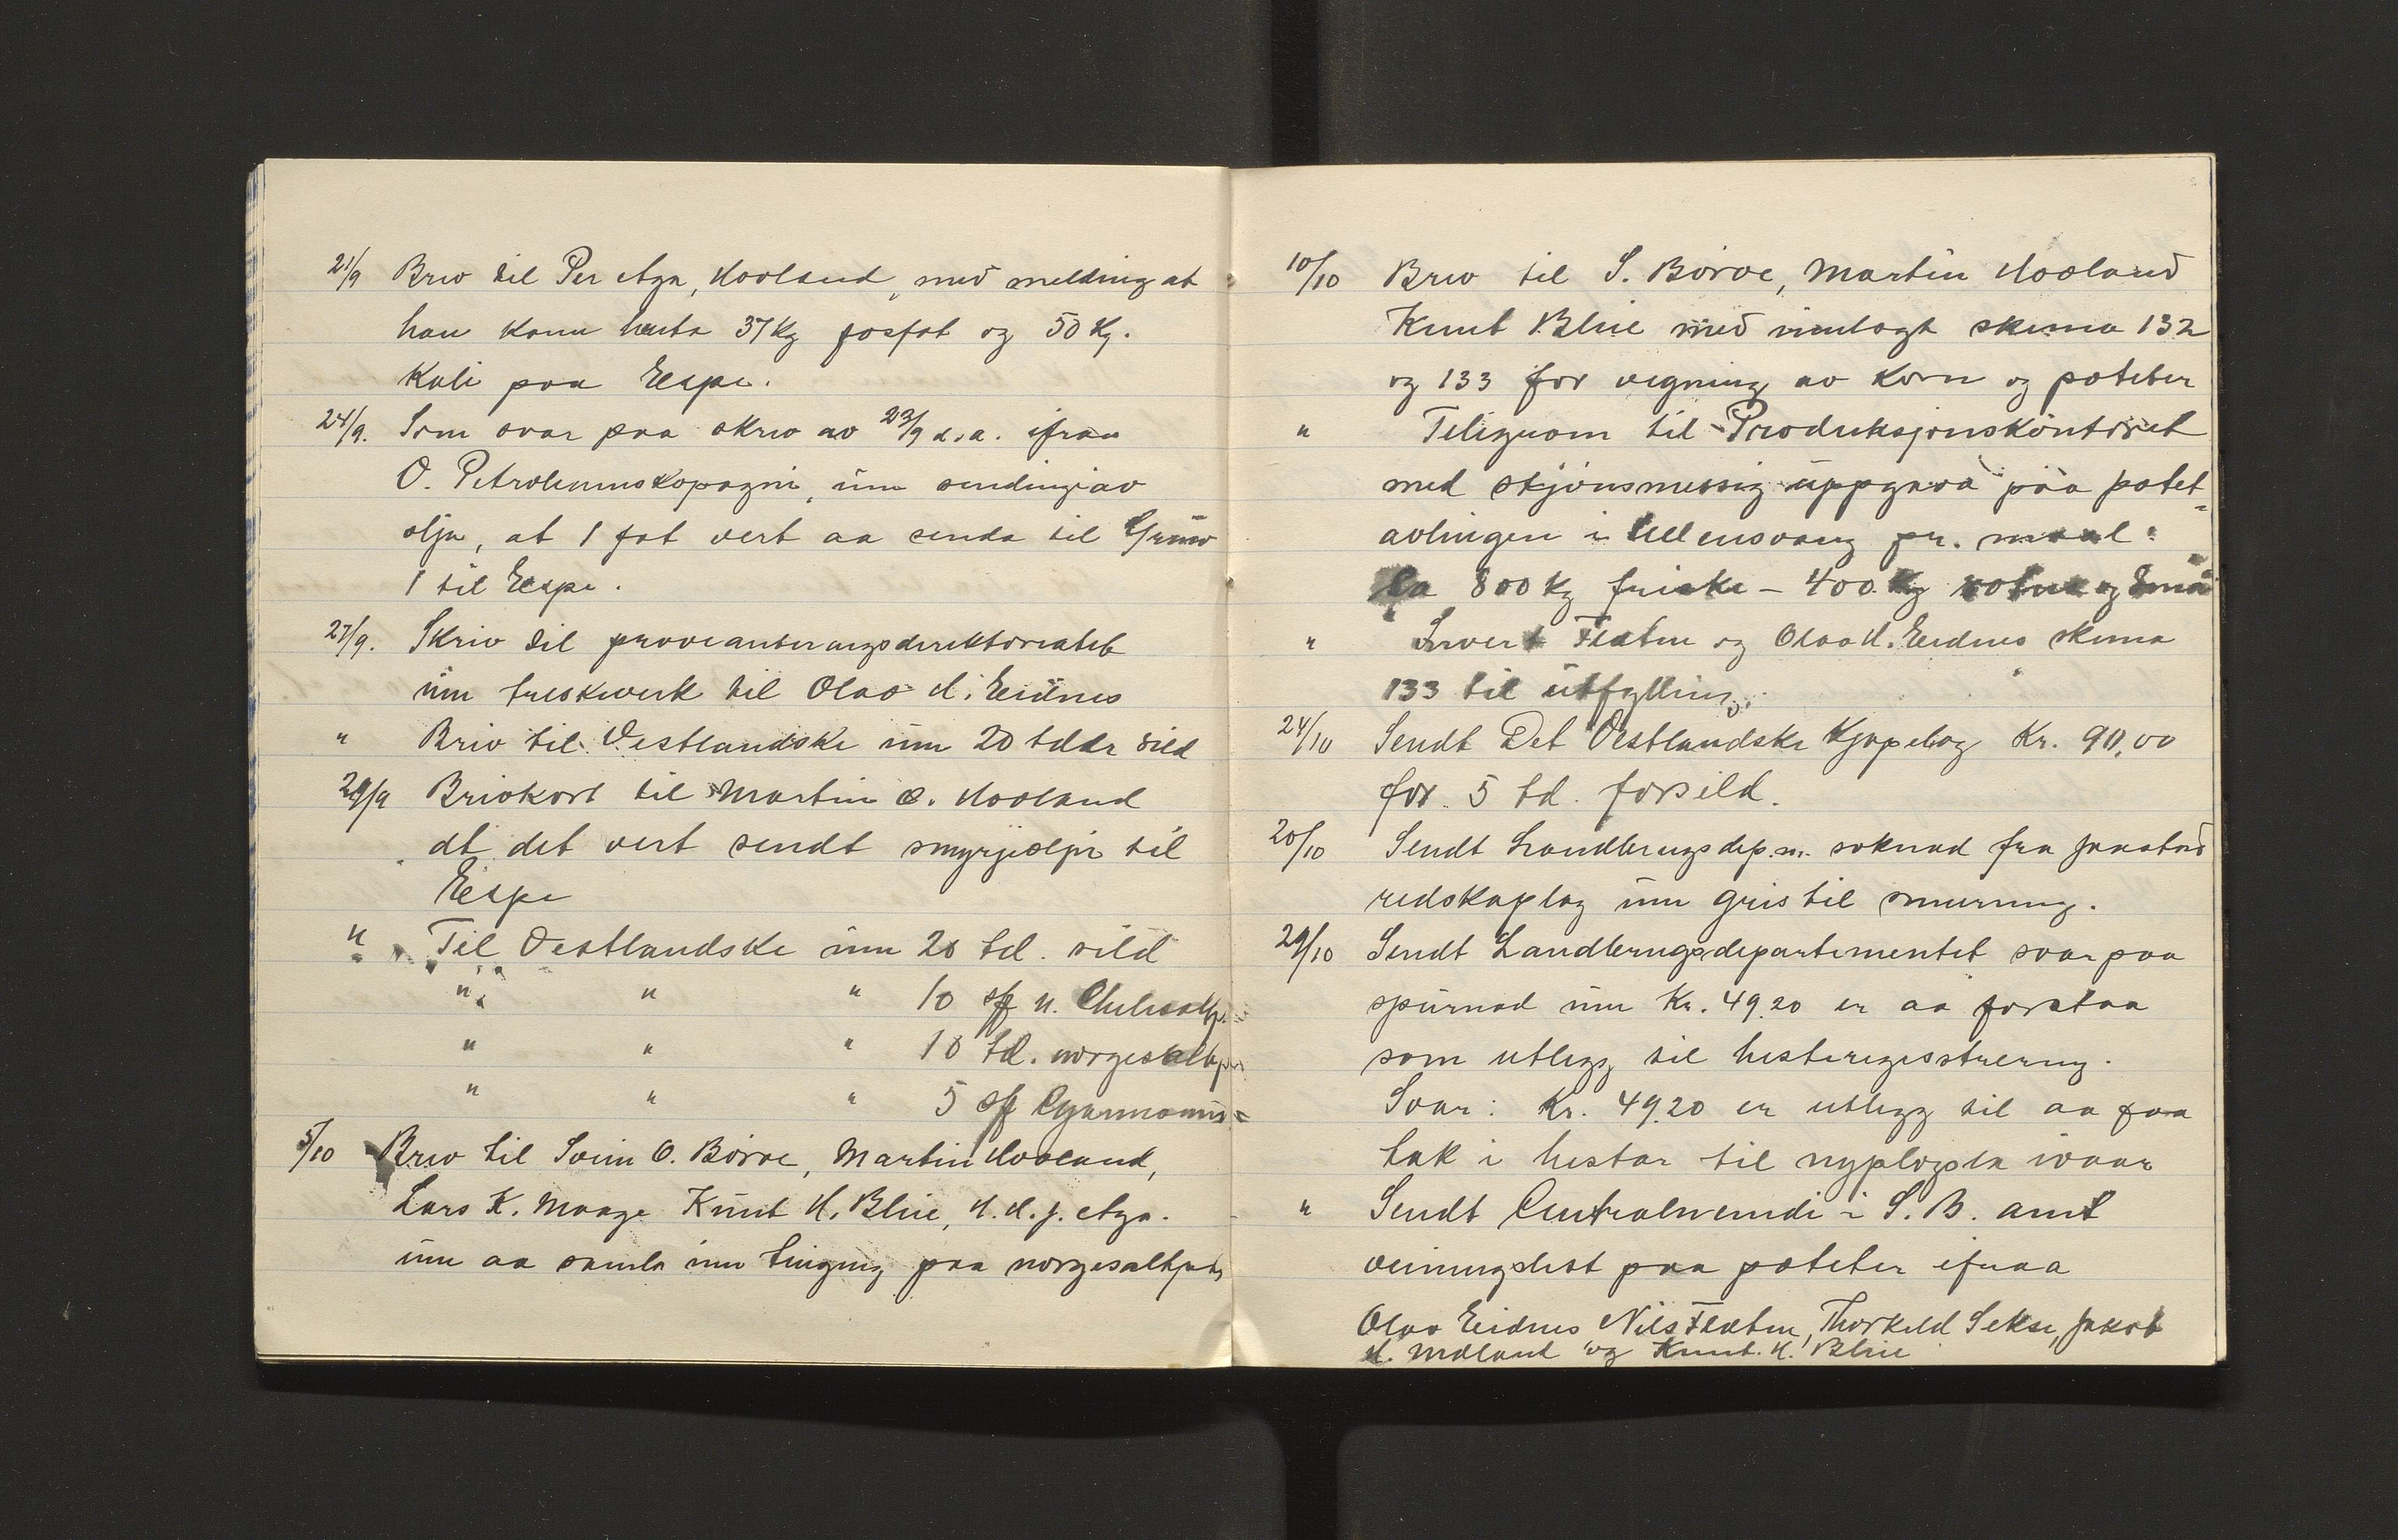 21/9 Briv til Per Aga, Hovland, med melding at
han kann henta 37 kg fosfat og 50 kg.
Kali paa Eespe.
24/9. Som svar paa skriv av 23/9 d.a. ifraa
O. Petroleumskopagni, um sendingi av
olja, at 1 fat vert aa senda til Grimo
1 til Eespe.
27/9. Skriv til provianteringsdirektoriatet
um treskverk til Olav H. Eidnes
" Briv til Vestlandske um 20 tddr sild
29/9 Brivkort til Martin O. Hovland
at det vert sendt smyrjeolje til
Eespe
" Til Vestlandske um 20 td. sild
" " " 10 sp n. Chilesaltp.
" " " 10 td. norgesaltp
" " " 5 sp
5/10 Briv til Svein O. Börve, Martin Hovland,
Lars K. Maage Knut H. Blie, H. H. J. Aga.
um aa samla inn tinging paa norgesaltpet
10/10 Briv til S. Börve, Martin Hovland
Knut Blie med innlagt skema 132
og 133 for vegning av korn og poteter
" Telegram til Produksjonskontoret
med skjönsmessig uppgava paa potet=
avlingen i Ullensvang pr. maal:
Ca 800 kg friske – 400 kg rotne og smaa
" Sivert Flaten og Olav H. Eidnes skema
133 til utfylling.
24/10 Sendt Det Vestlandske Kjöpelag Kr. 90,00
for 5 td. forsild.
20/10 Sendt Landbrugsdep.m. soknad fra Jaastad
redskaplag um gris til smurning.
29/10 Sendt Landbrugsdepartementet svar paa
spurnad um Kr. 49,20 er aa forstaa
som utlegg til hesteregisstrering.
Svar: Kr. 49.20 er utlegg til aa faa
tak i hestar til nyplögsla ivaar
" Sendt Centralnemdi i S. B. amt
veiningslist paa poteter ifraa
Olav Eidnes Nils Flaten, Thorkeld Sekse, Jakob
H. Måland og Knut. H. Blie